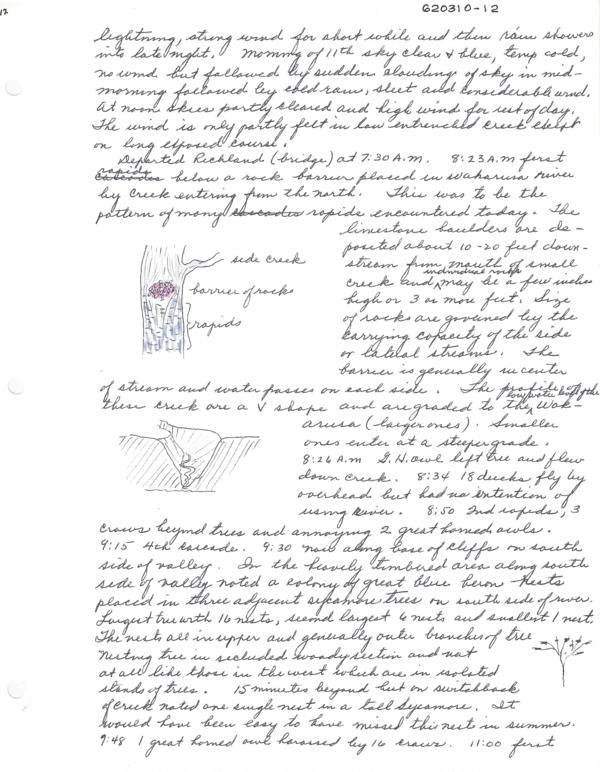 12
620310-12
lightning, strong wind for short while and then rain showers
into late night. Morning of 11th sky clear & blue, temp cold,
no wind but followed by sudden clouding of sky in mid-
morning followed by cold rain, sleet and considerable wind.
At noon skies partly cleared and high wind for rest of day.
The wind is only partly felt in low entrenched creek except
on long exposed course.
Departed Richland (bridge) at 7:30 A.M. 8:23 A.M first
rapids
cascades below a rock barrier placed in Wakarusa River
by creek entering from the north. This was to be the
pattern of many cascades rapids encountered today. The
limestone boulders are de-
posited about 10-20 feet down-
stream from mouth of small
individual rocks
creek and may be a few inches
high or 3 or more feet. Size
of rocks are governed by the
carrying capacity of the side
or lateral streams. The
barrier is generally in center
side creek
barrier of rocks
rapids
of stream and water passes on each side. The profile of
low water level of the
these creek are a V shape and are graded to the Wak-
arusa (larger ones). Smaller
ones enter at a steeper grade.
8:26 A.M G.H. owl left tree and flew
down creek. 8:34 18 ducks fly by
overhead but had no intention of
using river. 8:50 2nd rapids, 3
crows beyond trees and annoying 2 great horned owls.
9:15 4th cascade. 9:30 now along base of cliffs on south
side of valley. In the heavily timbered area along south
side of valley noted a colony of great blue heron nests
placed in three adjacent sycamore trees on south side of river.
Largest tree with 16 nests, second largest 6 nests and smallest 1 nest.
The nests all in upper and generally outer branches of tree
Nesting tree in secluded woody section and not
at all like those in the west which are in isolated
stands of trees. 15 minutes beyond but on switchback
of creek noted one single nest in a tall sycamore. It
would have been easy to have missed this nest in summer.
9:48 1 great horned owl harassed by 16 crows. 11:00 first